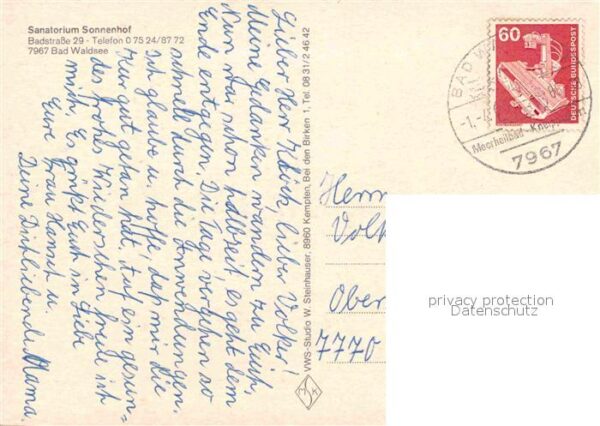 Sanatorium Sonnenhof
Badstraße 29 - Telefon 0 75 24/87 72
7967 Bad Waldsee
Lieber Herr Hänsch, lieber Volker!
Meine Gedanken wandern zu Euch,
Nun war schon Halbzeit es geht dem
Ende entgegen. Die Tage vergehen so
schnell durch die Anwendungen.
ich glaube u. hoffe, daß mir die
Kur gut getan hat, + auf ein gesun-
des frohes Wiedersehen freue ich
mich. Es grüßt Euch in Liebe
Eure Frau Hänsch u.
Deine Dichliebende Mama.
VWS-Studio W. Steinhauser, 8960 Kempten, Bei den Birken 1, Tel. 08 31/2 46 42
60
DEUTSCHE BUNDESPOST
BAD
-1.-
Moorheilbad-Kneipp
7967
Herrn
Volk
Ober
7770
privacy protection
Datenschutz